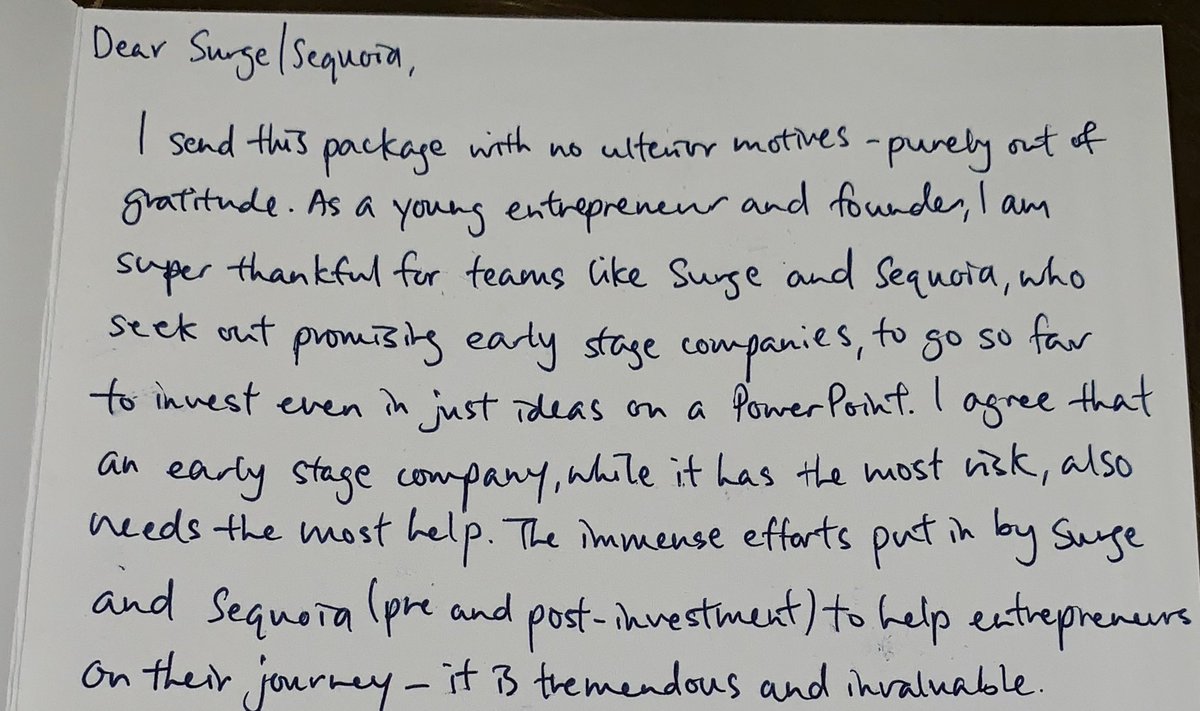 Dear Surge/Sequoia,
I send this package with no ulterior motives - purely out of
gratitude. As a young entrepreneur and founder, I am
super thankful for teams like Surge and Sequoia, who
seek out promising early stage companies, to go so far
to invest even in just ideas on a PowerPoint. I agree that
an early stage company, while it has the most risk, also
needs the most help. The immense efforts put in by Surge
and Sequoia (pre and post-investment) to help entrepreneurs
on their journey - it is tremendous and invaluable.